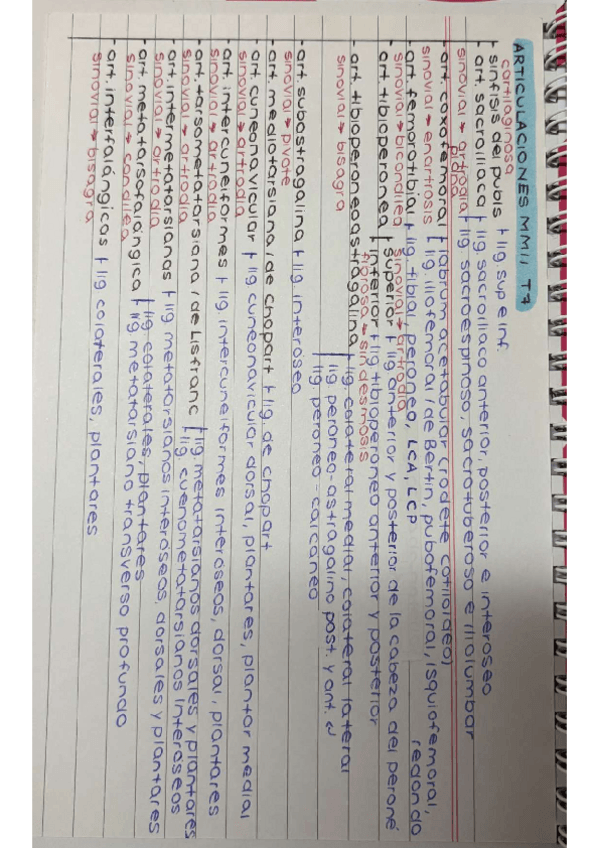 ARTICULACIONES MMII T7
cartilaginosa
- sínfisis del pubis + lig sup e inf.
- art. sacroilíaca lig sacroilíaco anterior, posterior e interóseo
sinovial → artrodia lig sacroespinoso, sacrotuberoso e iliolumbar
plana
- art. coxofemoral labrum acetabular (rodete cotiloideo)
sinovial → enartrosis lig. iliofemoral / de Bertin, pubofemoral, isquiofemoral, redondo
- art. femorotibial + lig. tibial, peroneo, LCA, LCP
sinovial → bicondílea sinovial → artrodia
- art. tibioperonea superior + lig anterior y posterior de la cabeza del peroné
inferior + lig tibioperoneo anterior y posterior
fibrosa → sindesmosis
- art. tibioperoneoastragalina lig. colateral medial, colateral lateral
sinovial → bisagra lig peroneo-astragalino post. y ant.
lig peroneo-calcaneo
- art. subastragalina + lig interóseo
sinovial → pivote
- art. mediotarsiana / de chopart + lig. de chopart
- art cuneonavicular + lig cuneonavicular dorsal, plantares, plantar medial
sinovial → artrodia
- art. intercuneiformes + lig. intercuneiformes interóseos, dorsal, plantares
sinovial → artrodia
- art. tarsometatarsiana / de Lisfranc lig metatarsianos dorsales y plantares
sinovial → artrodia lig cuenometatarsianos interóseos
- art. intermetatarsianas + lig metatarsianos interóseos, dorsales y plantares
sinovial → artrodia
- art. metatarsofalángica lig colaterales, plantares
sinovial → condílea lig metatarsiano transverso profundo
- art. interfalángicas + lig colaterales, plantares
sinovial → bisagra